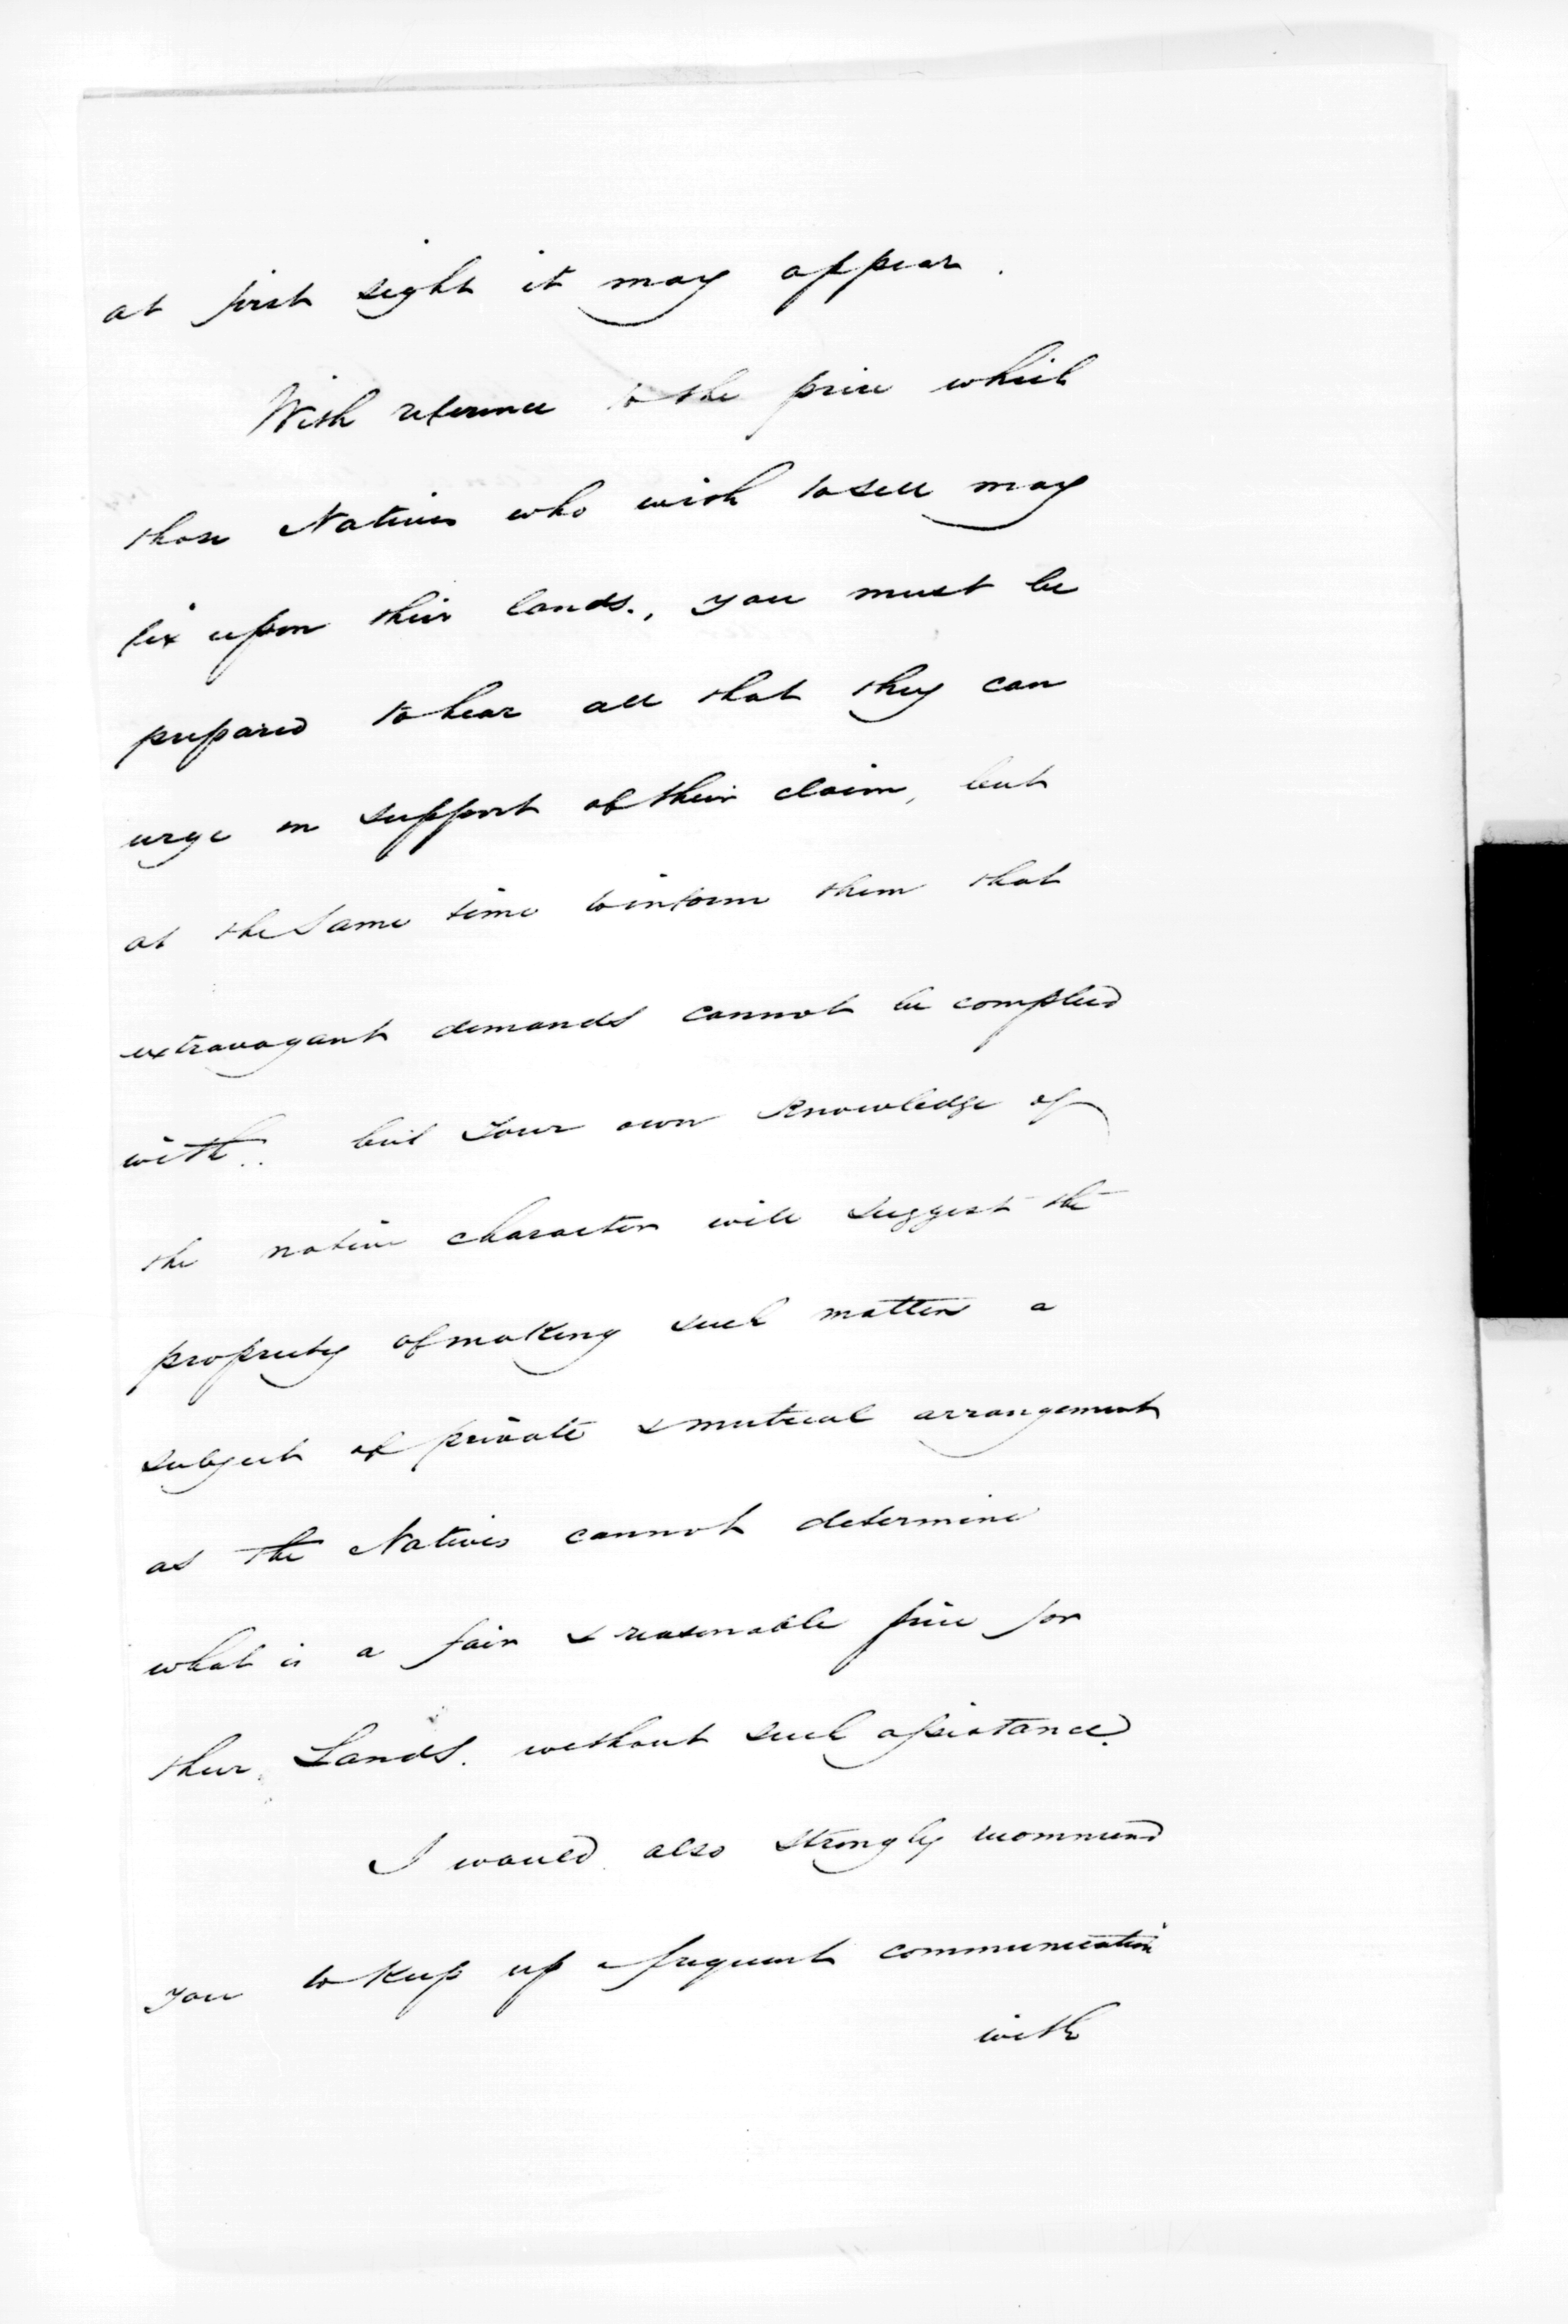 at first sight it may appear.
With reference to the price which
those Natives who wish to sell may
fix upon their lands., you must be
prepared to hear all that they can
urge in support of their claim, but
at the same time to inform them that
extravagant demands cannot be complied
with.. but your own knowledge of
the native character will suggest the
propriety of making such matters a
subject of private & mutual arrangement
as the Natives cannot determine
what is a fair & reasonable price for
their Lands. without such assistance.
I would also strongly recommend
you to keep up a frequent communication
with